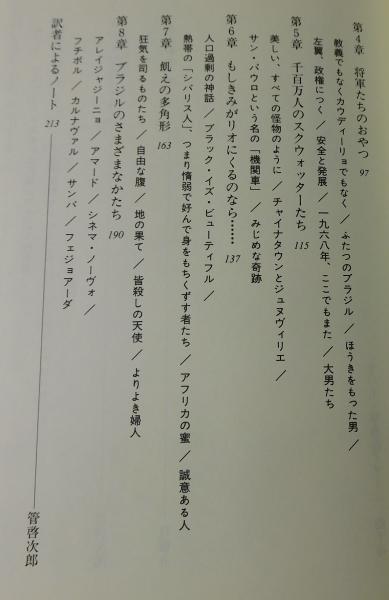 第4章 将軍たちのおやつ 97
教義でもなくカウディーリョでもなく／ふたつのブラジル／ほうきをもった男／
左翼、政権につく／安全と発展／一九六八年、ここでもまた／大男たち
第5章 千百万人のスクウォッターたち 115
美しい、すべての怪物のように／チャイナタウンとジュヌヴィリエ／
サン・パウロという名の「機関車」／みじめな奇跡
第6章 もしきみがリオにくるのなら…… 137
人口過剰の神話／ブラック・イズ・ビューティフル／
熱帯の「シバリス人」、つまり惰弱で好んで身をもちくずす者たち／アフリカの蜜／誠意ある人
第7章 飢えの多角形 163
狂気を司るものたち／自由な腹／地の果て／皆殺しの天使／よりよき婦人
第8章 ブラジルのさまざまなかたち 190
アレイジャジーニョ／アマード／シネマ・ノーヴォ／
フチボル／カルナヴァル／サンバ／フェジョアーダ
訳者によるノート 213 ――管啓次郎